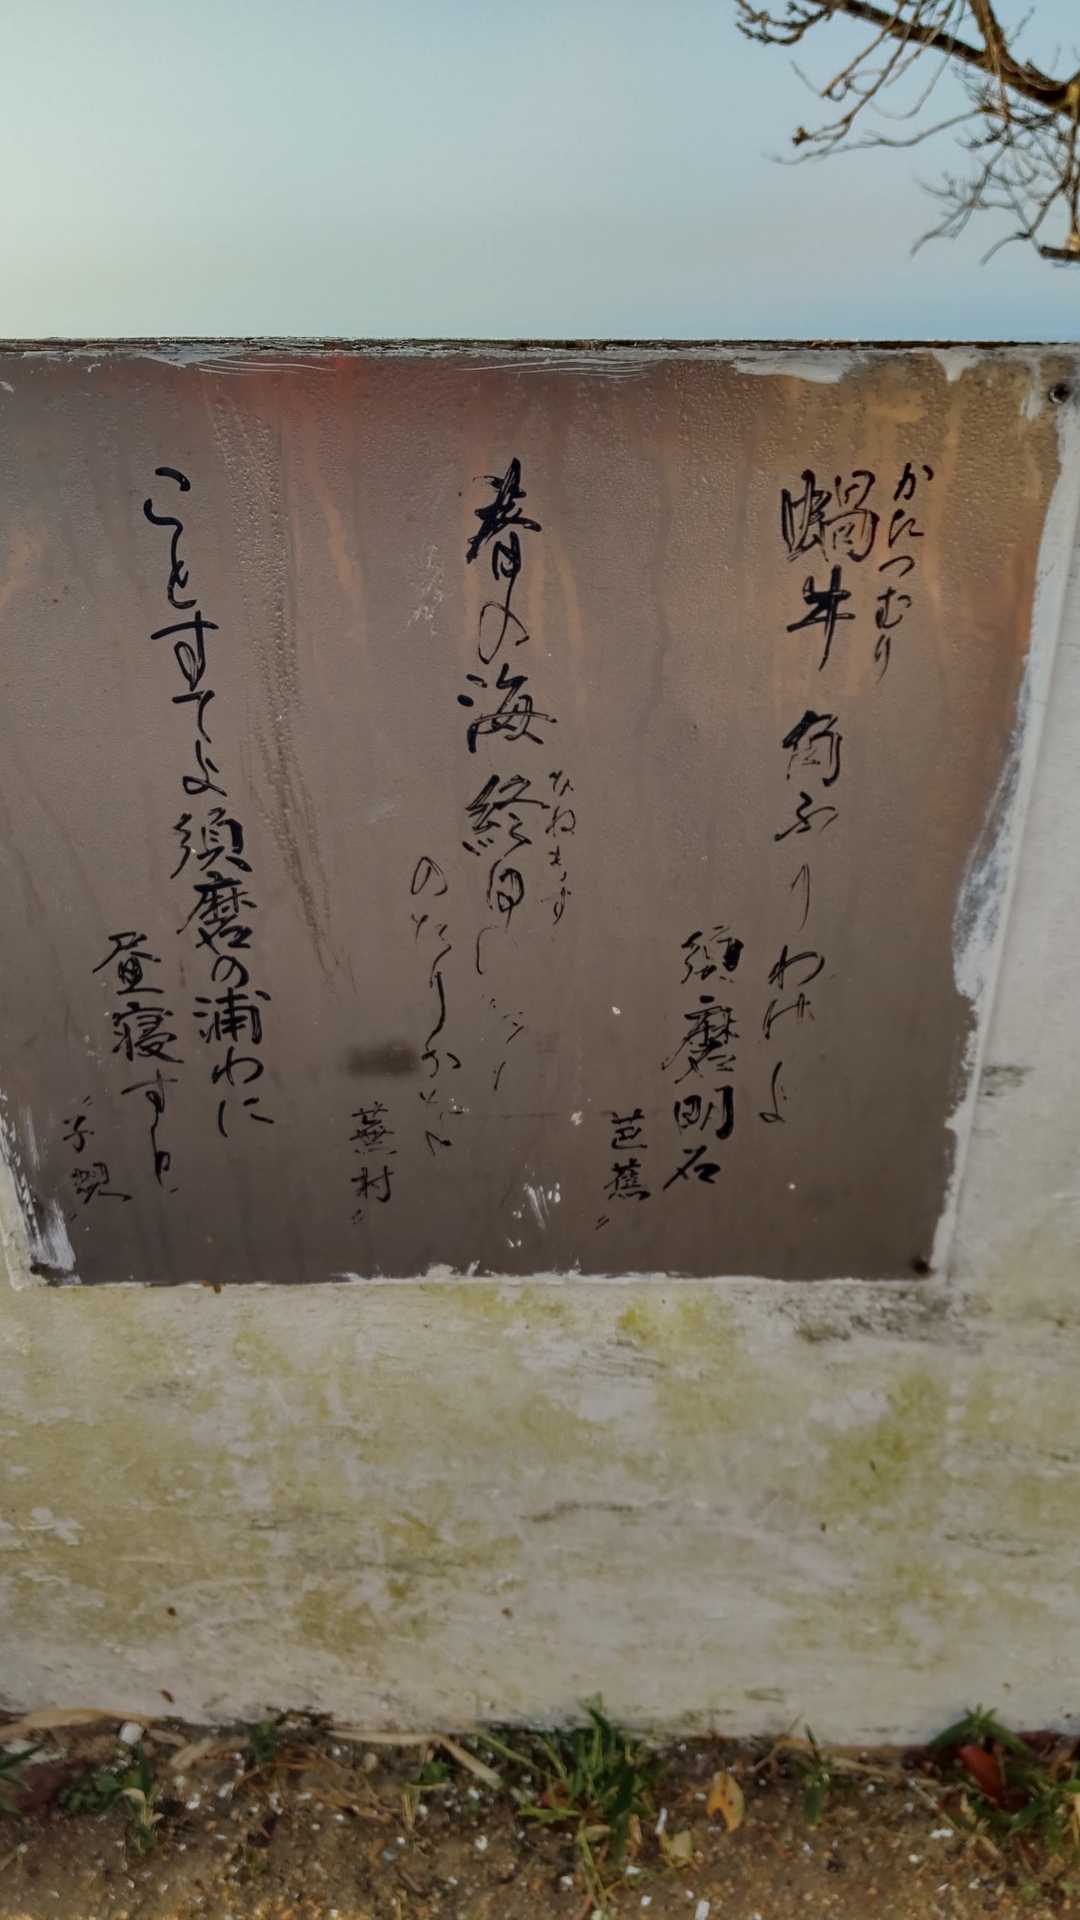 かたつむり
蝸牛角ふりわけよ
須磨明石
芭蕉
春の海終日
ひねもす
のたりかな
蕪村
ことすてよ須磨の浦わに
昼寝す
子規